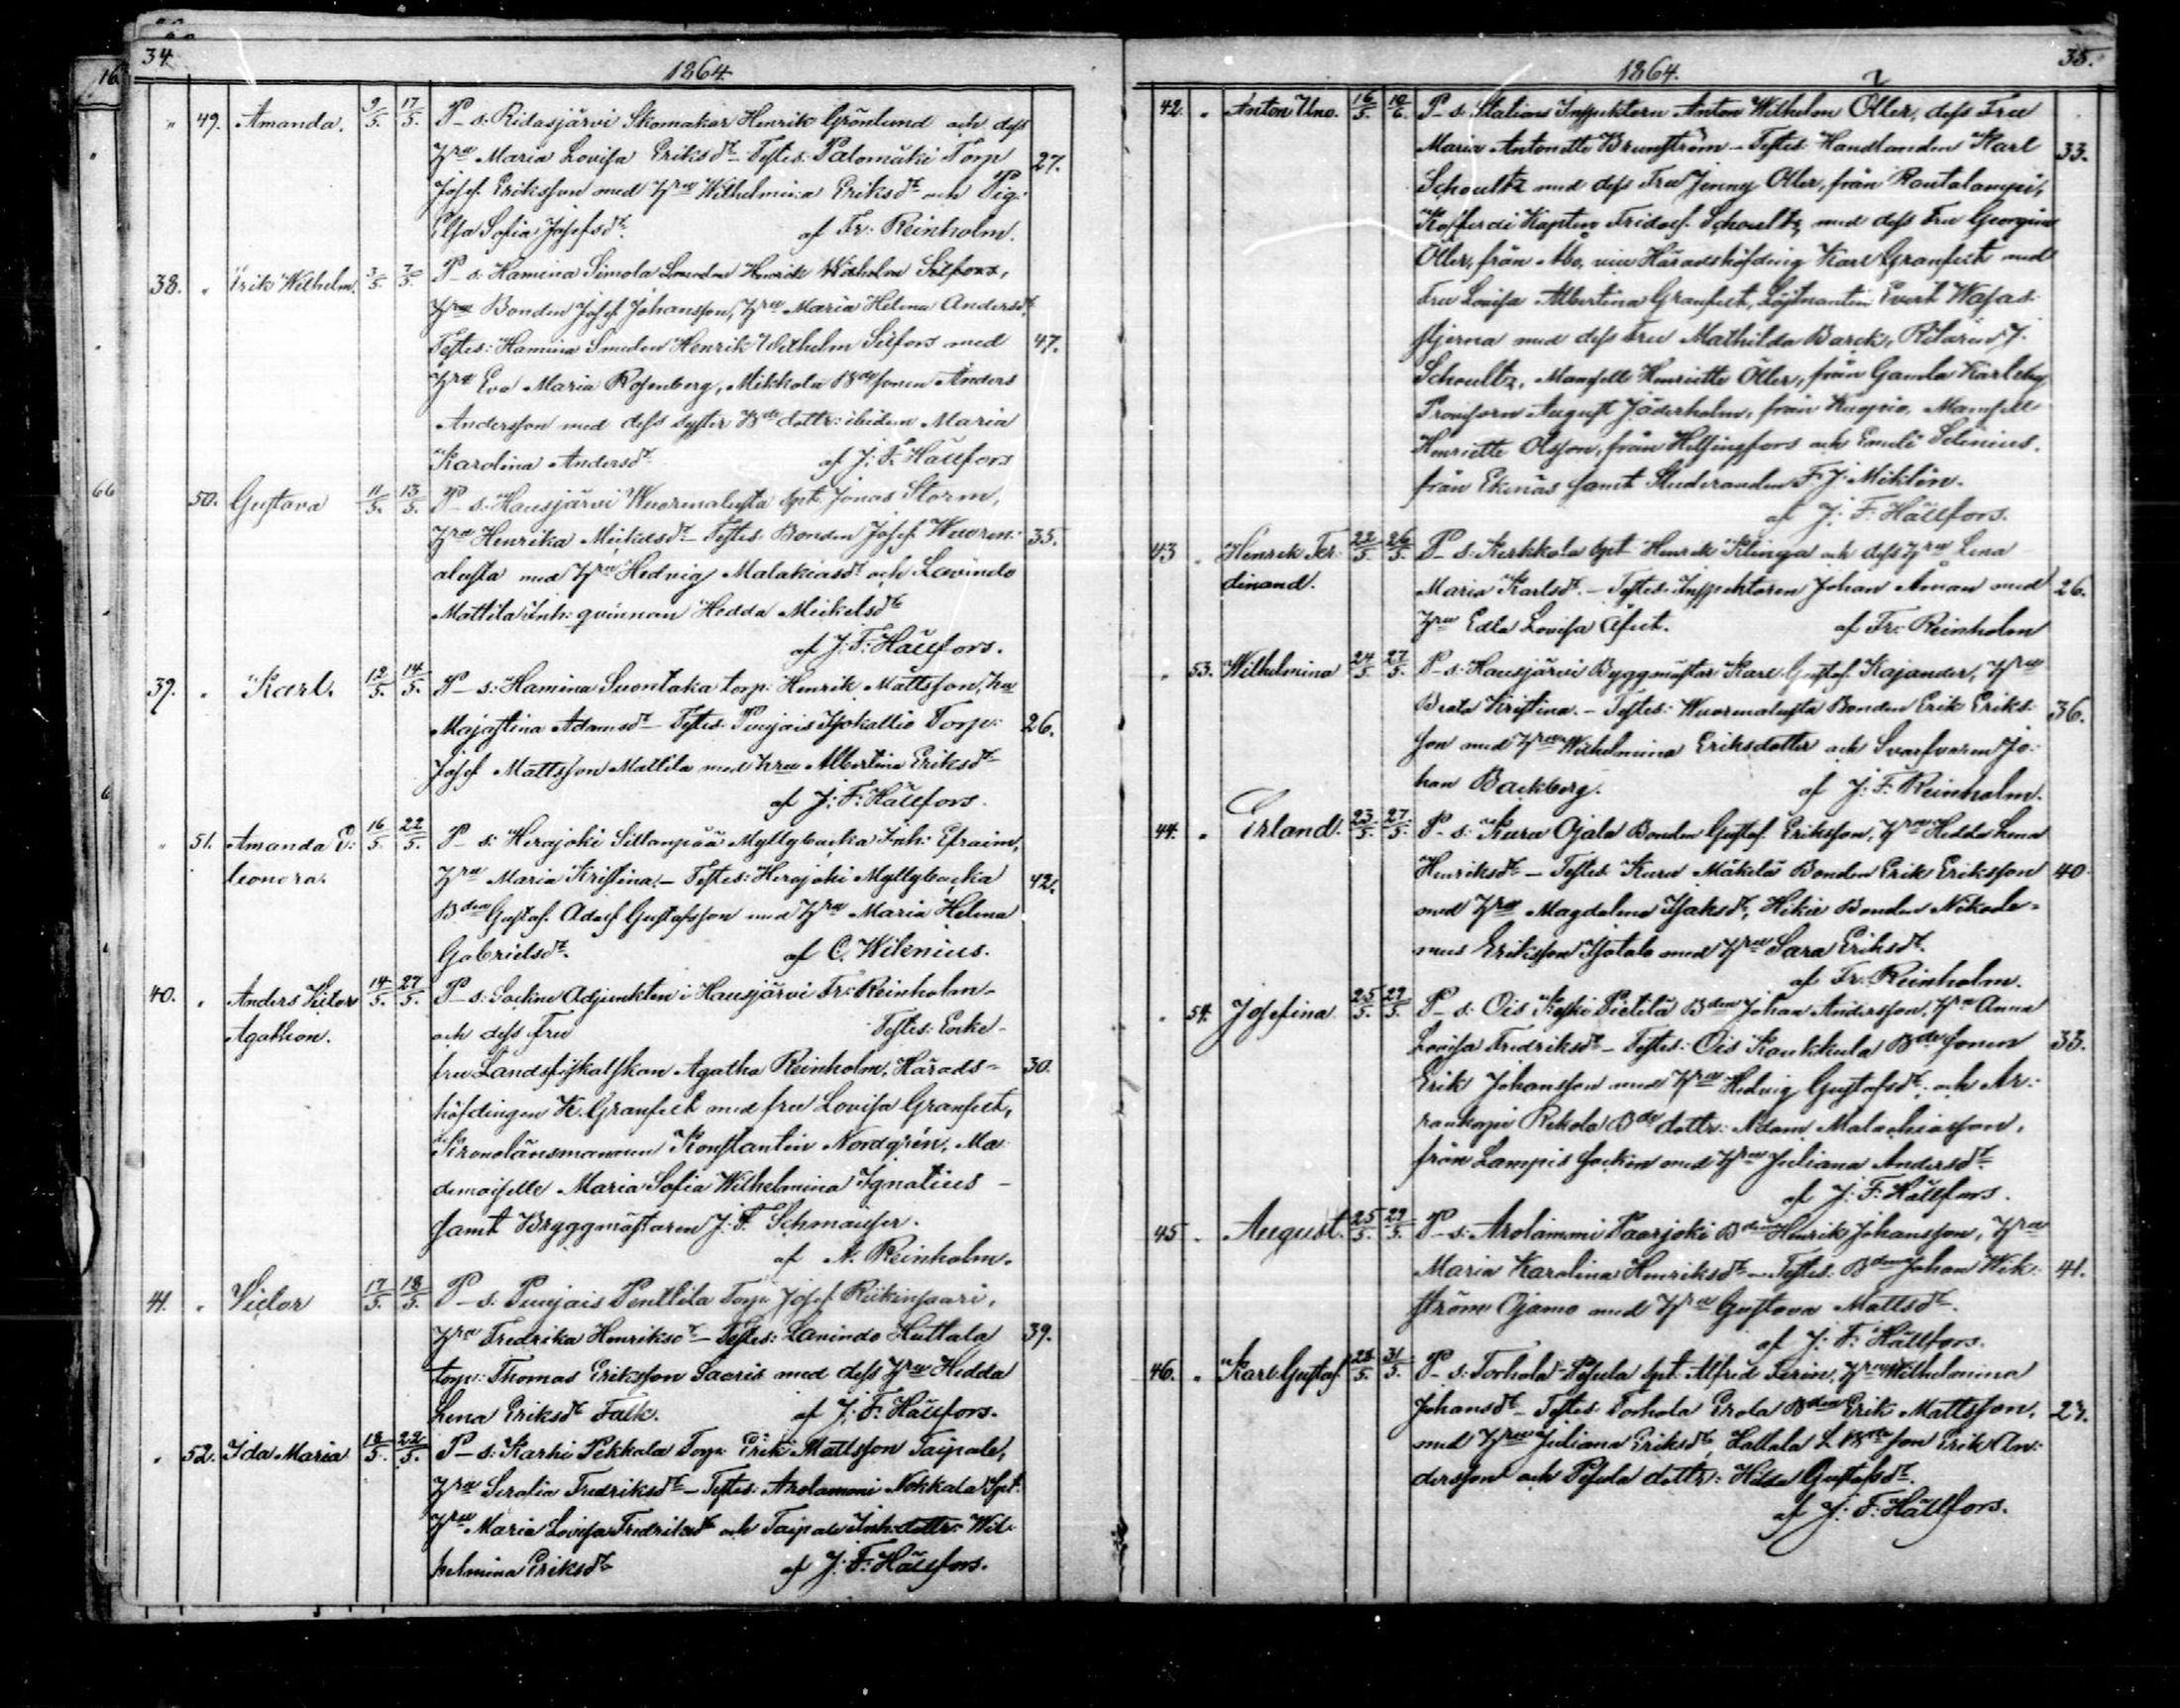 34.
1864.
" 49. Amanda. 9/5. 17/5. P. s: Ridasjärvi Skomakar Henrik Grönlund och dess
Hru Maria Lovisa Eriksdt – Testes: Palomäki Torp 27.
Josef Eriksson med Hru Wilhelmina Eriksdt och Pig:
Elsa Sofia Josefsdt. af Fr: Reinholm.
38. " Erik Wilhelm. 3/5. 7/5. P. s: Hamina Simola Henrik Wilhelm Silfors,
Hru Bonden Josef Johansson, Hru Maria Helena Andersdt
Testes: Hamina Smeden Henrik Wilhelm Silfors med 47.
Hru Eva Maria Rosenberg, Mikkola Bdesonen Anders
Andersson med dess syster Bde dottr: ibidem Maria
Karolina Andersdt af J: F: Hällfors
50. Gustava 11/5. 13/5. P. s: Hausjärvi Wuorenalusta Spt. Jonas Storm,
Hru Henrika Mickelsdt – Testes: Bonden Josef Wuoren: 35.
alusta med Hru Hedvig Malakiasdt och Lavinto
Mattila Inh: qvinnan Hedda Mickelsdt
af J: F: Hällfors.
39. " Karl. 12/5. 14/5. P. s: Hamina Suontaka torp: Henrik Mattsson, hru
Majastina Adamsdt – Testes: Puujais Isokallio Torp: 26.
Josef Mattsson Mattila med hru Albertina Eriksdt
af J: F: Hällfors.
" 51. Amanda E: 16/5. 22/5. P. s: Herajoki Sillanpää Myllybacka Inh: Efraim,
leonora. Hru Maria Kristina. – Testes: Herajoki Myllybacka 42.
Bden Gustaf Adolf Gustafsson med Hru Maria Helena
Gabrielsdt. af C. Wilenius.
40. " Anders Victor 14/5. 27/5. P. s: Sockne Adjunkten i Hausjärvi Fr: Reinholm –
Agathon. och dess Fru Testes: Enke-
fru Landsfiskalskan Agatha Reinholm, Härads= 30.
höfdingen K. Granfelt med fru Lovisa Granfelt,
Kronolänsmannen Konstantin Nordgrén, Ma
demoiselle Maria Sofia Wilhelmina Ignatius –
samt Byggmästaren J. F. Schmäuser.
af N. Reinholm.
41. " Victor 17/5. 18/5. P. s: Puujais Penttilä Torp: Josef Riikinsaari,
Hru Fredrika Henriksdt – Testes: Lavinto Huttala 39.
torp: Thomas Eriksson Saaris med dess Hru Hedda
Lena Eriksdt Falk. af J: F: Hällfors.
" 52. Ida Maria 18/5. 22/5. P. s: Karhi Pekkala Torp: Erik Mattsson Taipale,
Hru Serafia Fredriksdt – Testes: Arolammi Nokkala Spt:
Hru Maria Lovisa Fredriksdt och Taipale Inh: dottr: Wil:
helmina Eriksdt af J: F: Hällfors.
35.
1864.
42. " Anton Uno. 16/5. 10/6. P. s: Stations Inspektoren Anton Wilhelm Öller, dess Fru
Maria Antonette Brunström – Testes: Handlanden Karl 33.
Schoultz med dess Fru Jenny Öller, från Rautalampi,
Kofferdi Kapten Fridolf Schoultz med dess Fru Georgina
Öller, från Åbo, vice Häradshöfding Karl Granfelt med
Fru Lovisa Albertina Granfelt, Löjtnanten Evert Wasas:
stjerna med dess Fru Mathilda Barck, Ritaren J.
Schoultz, Mamsell Henriette Öller, från Gamla Karleby
Provisorn August Jäderholm, från Kuopio, Mamsell
Henriette Olsson, från Helsingfors och Emeli Selenius.
från Ekenäs samt Studeranden F. J. Miklin.
af J. F. Hällfors.
43. " Henrik Fer: 22/5. 26/5. P. s: Kerkkola Spt Henrik Klinga och dess Hru Lena
dinand. Maria Karlsdt. – Testes: Inspektoren Johan Åman med 26.
Hru Edla Lovisa af Fr: Reinholm
" 53. Wilhelmina 24/5. 27/5. P. s: Hausjärvi Byggmästar Karl Gustaf Kajander, Hru
Beata Kristina. – Testes: Wuorenalusta Bonden Erik Eriks: 36.
son med Hru Wilhelmina Eriksdotter och Svarfvaren Jo:
han Backberg. af J. F. Reinholm.
44. " Erland. 23/5. 27/5. P. s: Kuru Ojala Bonden Gustaf Eriksson, Hru Hedda Lena
Henriksdt – Testes: Kuru Mäkelä Bonden Erik Eriksson 40
med Hru Magdalena Isaksdt, Hikie Bonden Nikode-
mus Eriksson Isotalo med Hru Sara Eriksdt.
af Fr: Reinholm.
" 54. Josefina 25/5. 29/5. P. s: Ois Keski Pietilä Bden Johan Andersson, Hru Anna
Lovisa Fredriksdt – Testes: Ois Kaukkula Bdesonen 33.
Erik Johansson med Hru Hedvig Gustafsdt. och Ar:
rankopi Rekola Bde dottr: Adam Malachiasson,
från Lampis Socken med Hru Juliana Andersdt
af J. F. Hällfors.
45. " August. 25/5. 29/5. P. s: Arolammi Paarjoki Bden Henrik Johansson, Hru
Maria Karolina Henriksdt – Testes: Bden Johan Wik: 41.
ström Ojamo med Hru Gustava Mattsdt.
af J. F. Hällfors.
46. " Karl Gustaf. 28/5. 31/5. P. s: Torhola Pesula Spt. Alfred Serin, Hru Wilhelmina
Johansdt – Testes: Torhola Erola Bden Erik Mattsson, 27.
med Hru Juliana Eriksdt, Hallala L Bde son Erik An:
dersson och Pesula dottr: Hilda Gustafsdt.
af J: F: Hällfors.